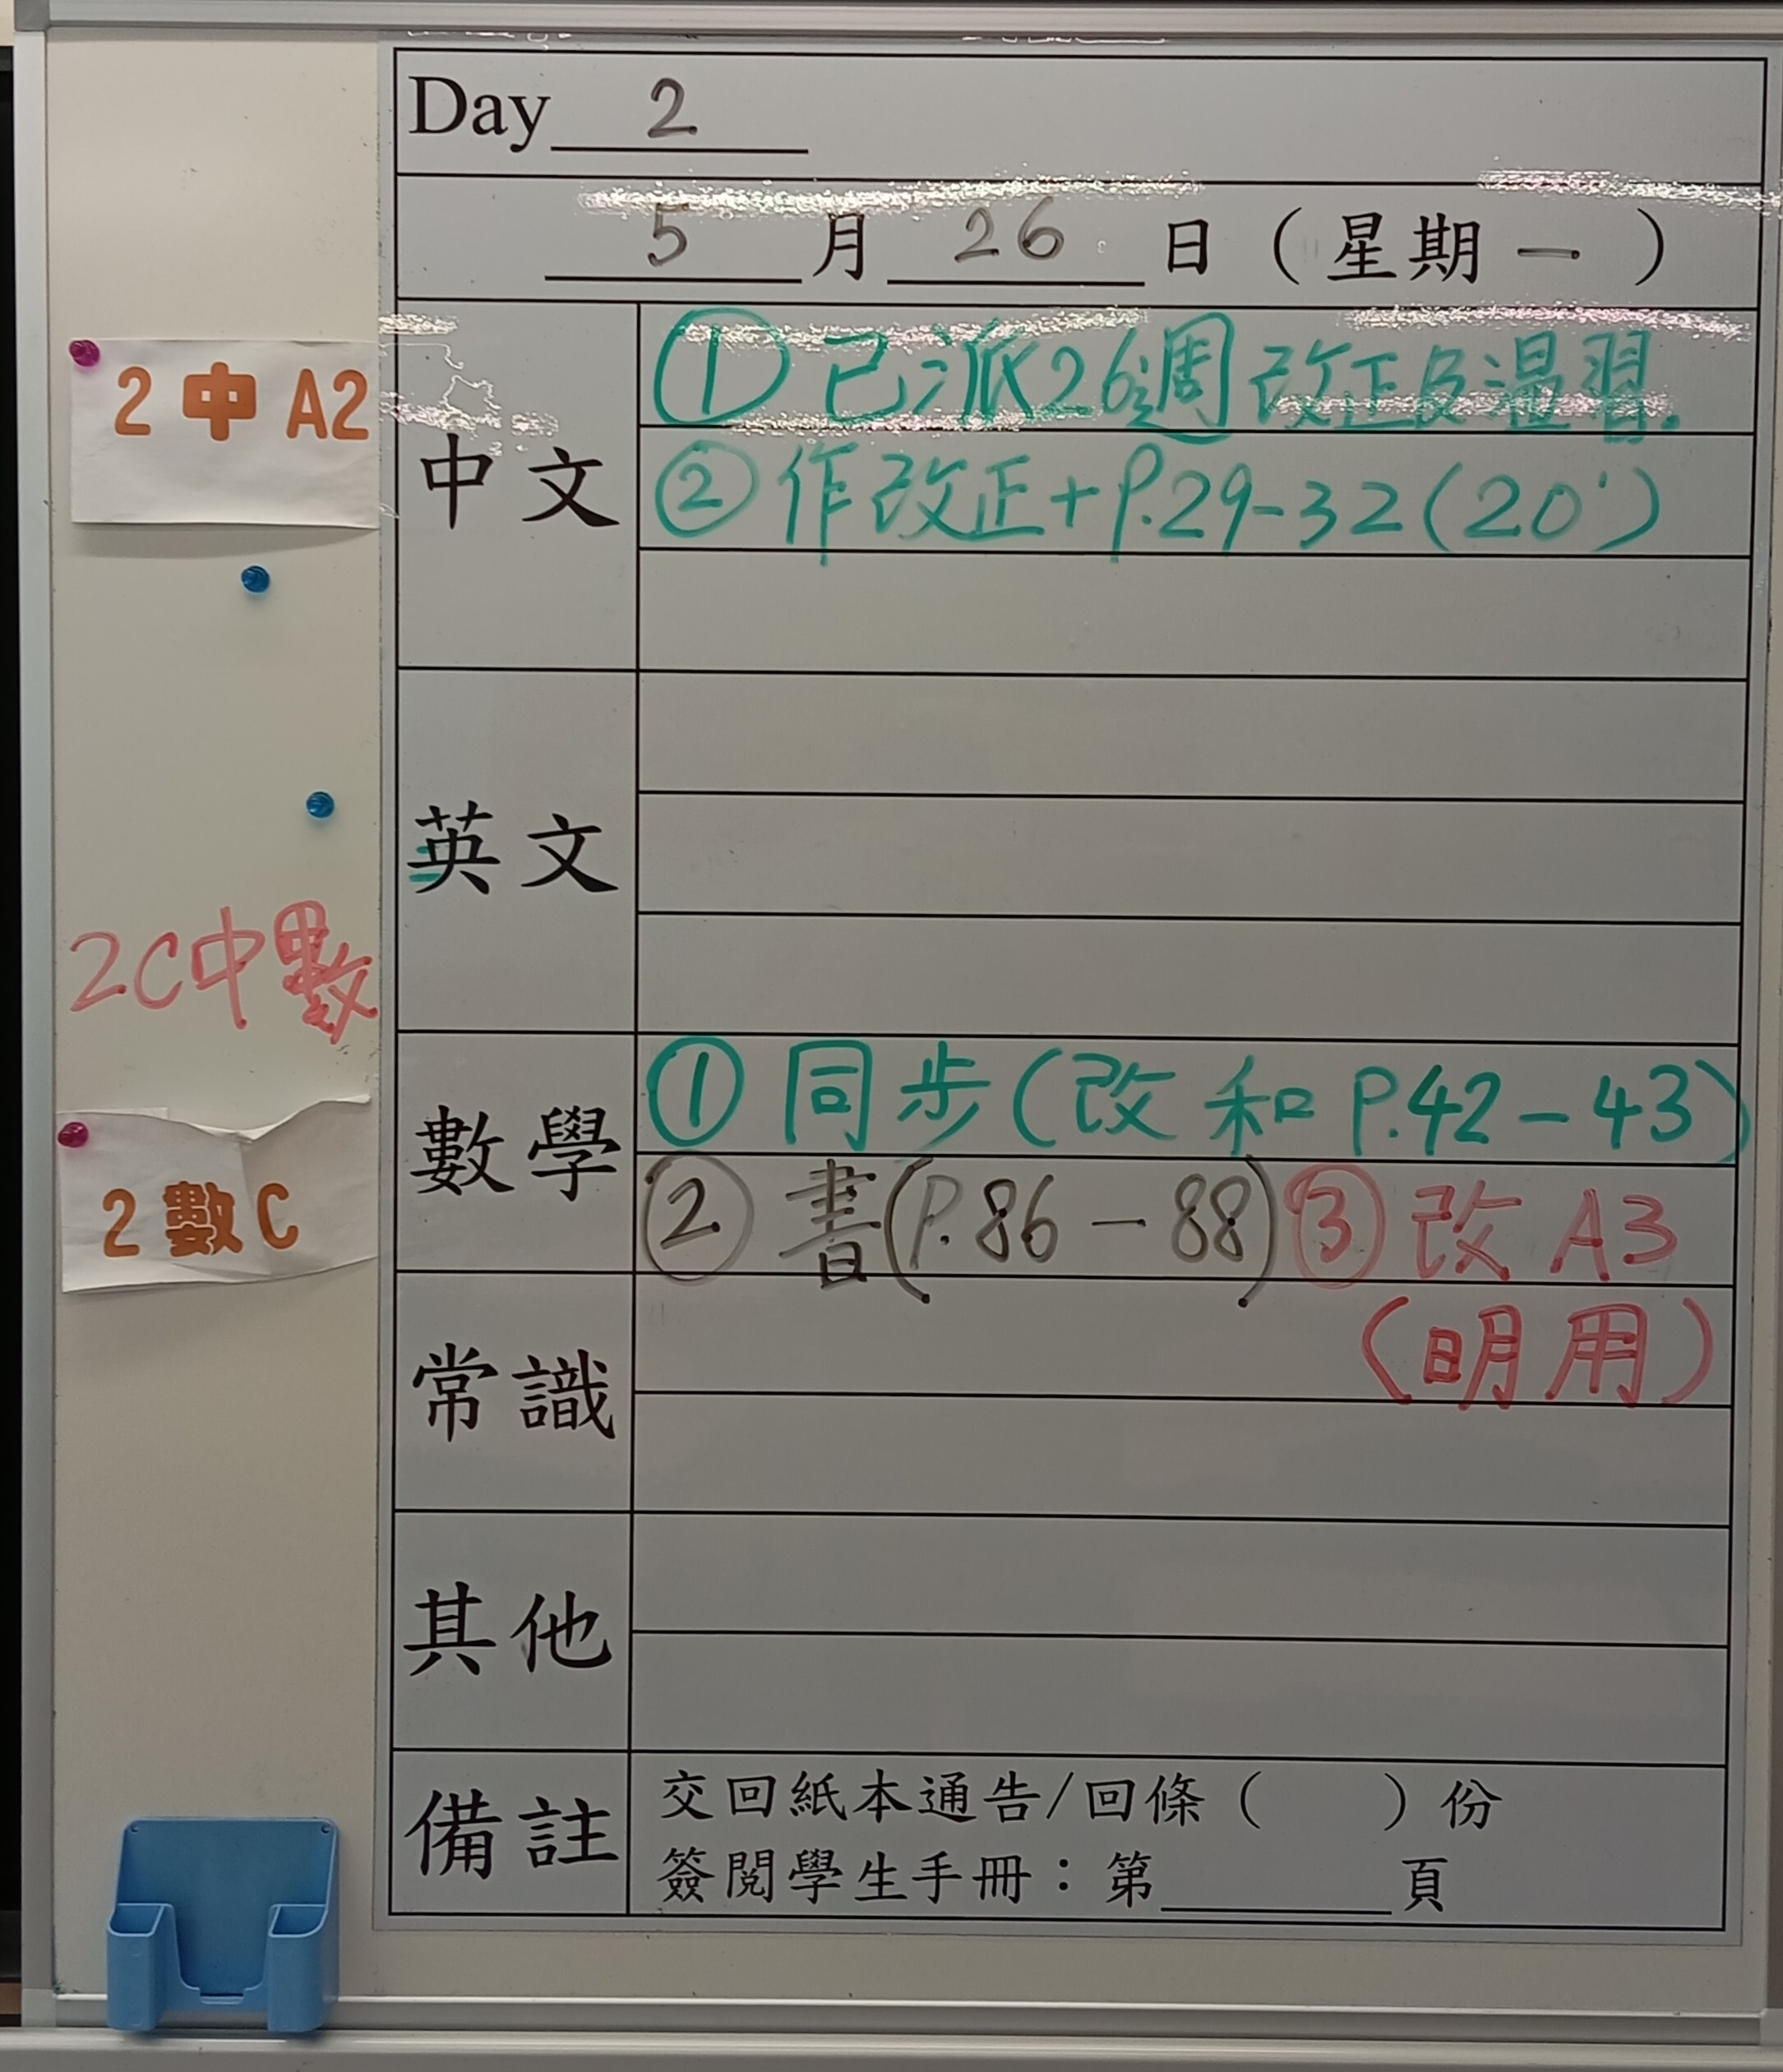 Day 2
5月26日（星期一）
2中A2
中文
①已派26週改正及溫習.
②作改正+P.29-32(20')
英文
2C中數
數學
①同步(改和P.42-43)
②書(P.86-88)③改A3
(明用)
2數C
常識
其他
備註
交回紙本通告/回條（　　）份
簽閱學生手冊：第______頁